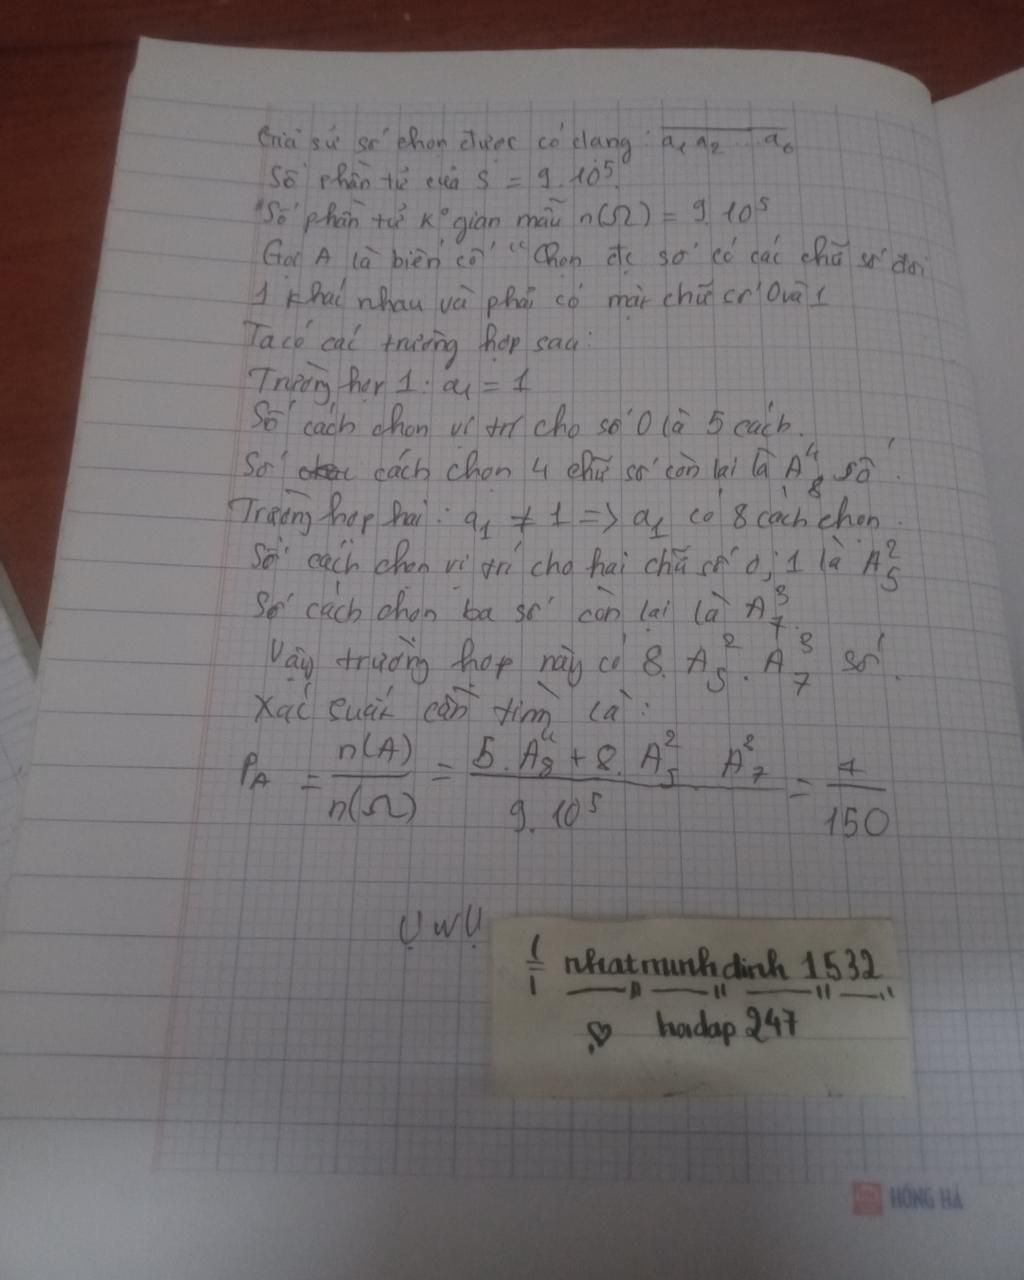 Giả sử số chọn được có dạng: a₁ a₂ ... a₆
Số phần tử của S = 9.10⁵.
Số phần tử k° gian mẫu n(Ω) = 9.10⁵
Gọi A là biến cố "Chọn đc số có các chữ số đôi
1 khác nhau và phải có mặt chữ số 0 và 1
Ta có các trường hợp sau:
Trường hợp 1: a₁ = 1
Số cách chọn vị trí cho số 0 là 5 cách.
Số cách chọn 4 chữ số còn lại là A⁴₈ số.
Trường hợp hai: a₁ ≠ 1 => a₁ có 8 cách chọn.
Số cách chọn vị trí cho hai chữ số 0; 1 là A²₅
Số cách chọn ba số còn lại là A³₇.
Vậy trường hợp này có 8. A²₅. A³₇ số.
Xác suất cần tìm là:
P_A = n(A)/n(Ω) = (5. A⁴₈ + 8. A²₅ A³₇)/(9.10⁵) = 7/150
ỤwỤ
nhatminhdinh 1532
hoidap 247
HỒNG HÀ